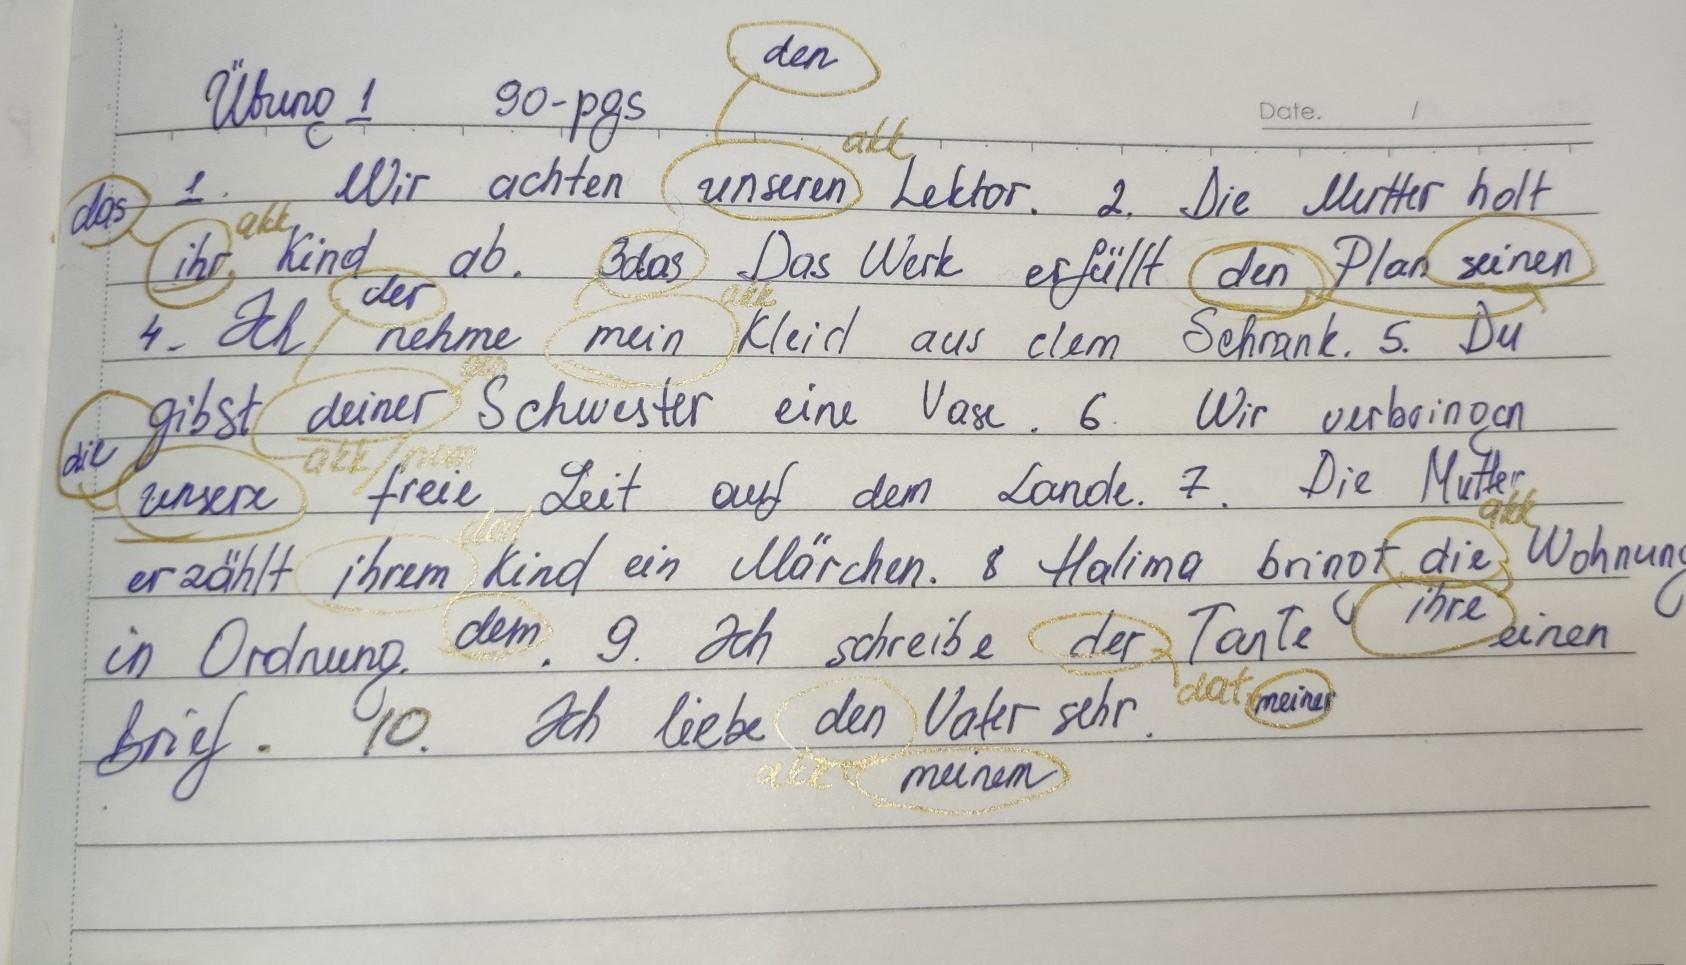 den
Übung 1 90-pgs
Date. /
akk
1. Wir achten unseren Lektor. 2. Die Mutter holt
das akk
ihr Kind ab. 3 das Das Werk erfüllt den Plan seinen
der akk
4. Ich nehme mein Kleid aus dem Schrank. 5. Du
gibst deiner Schwester eine Vase. 6 Wir verbringen
die akk/nom
unsere freie Zeit auf dem Lande. 7. Die Mutter
dat akk
erzählt ihrem Kind ein Märchen. 8 Halima bringt die Wohnung
in Ordnung. dem . 9. Ich schreibe der Tante ihre einen
dat meiner
Brief. 10. Ich liebe den Vater sehr.
akk meinem